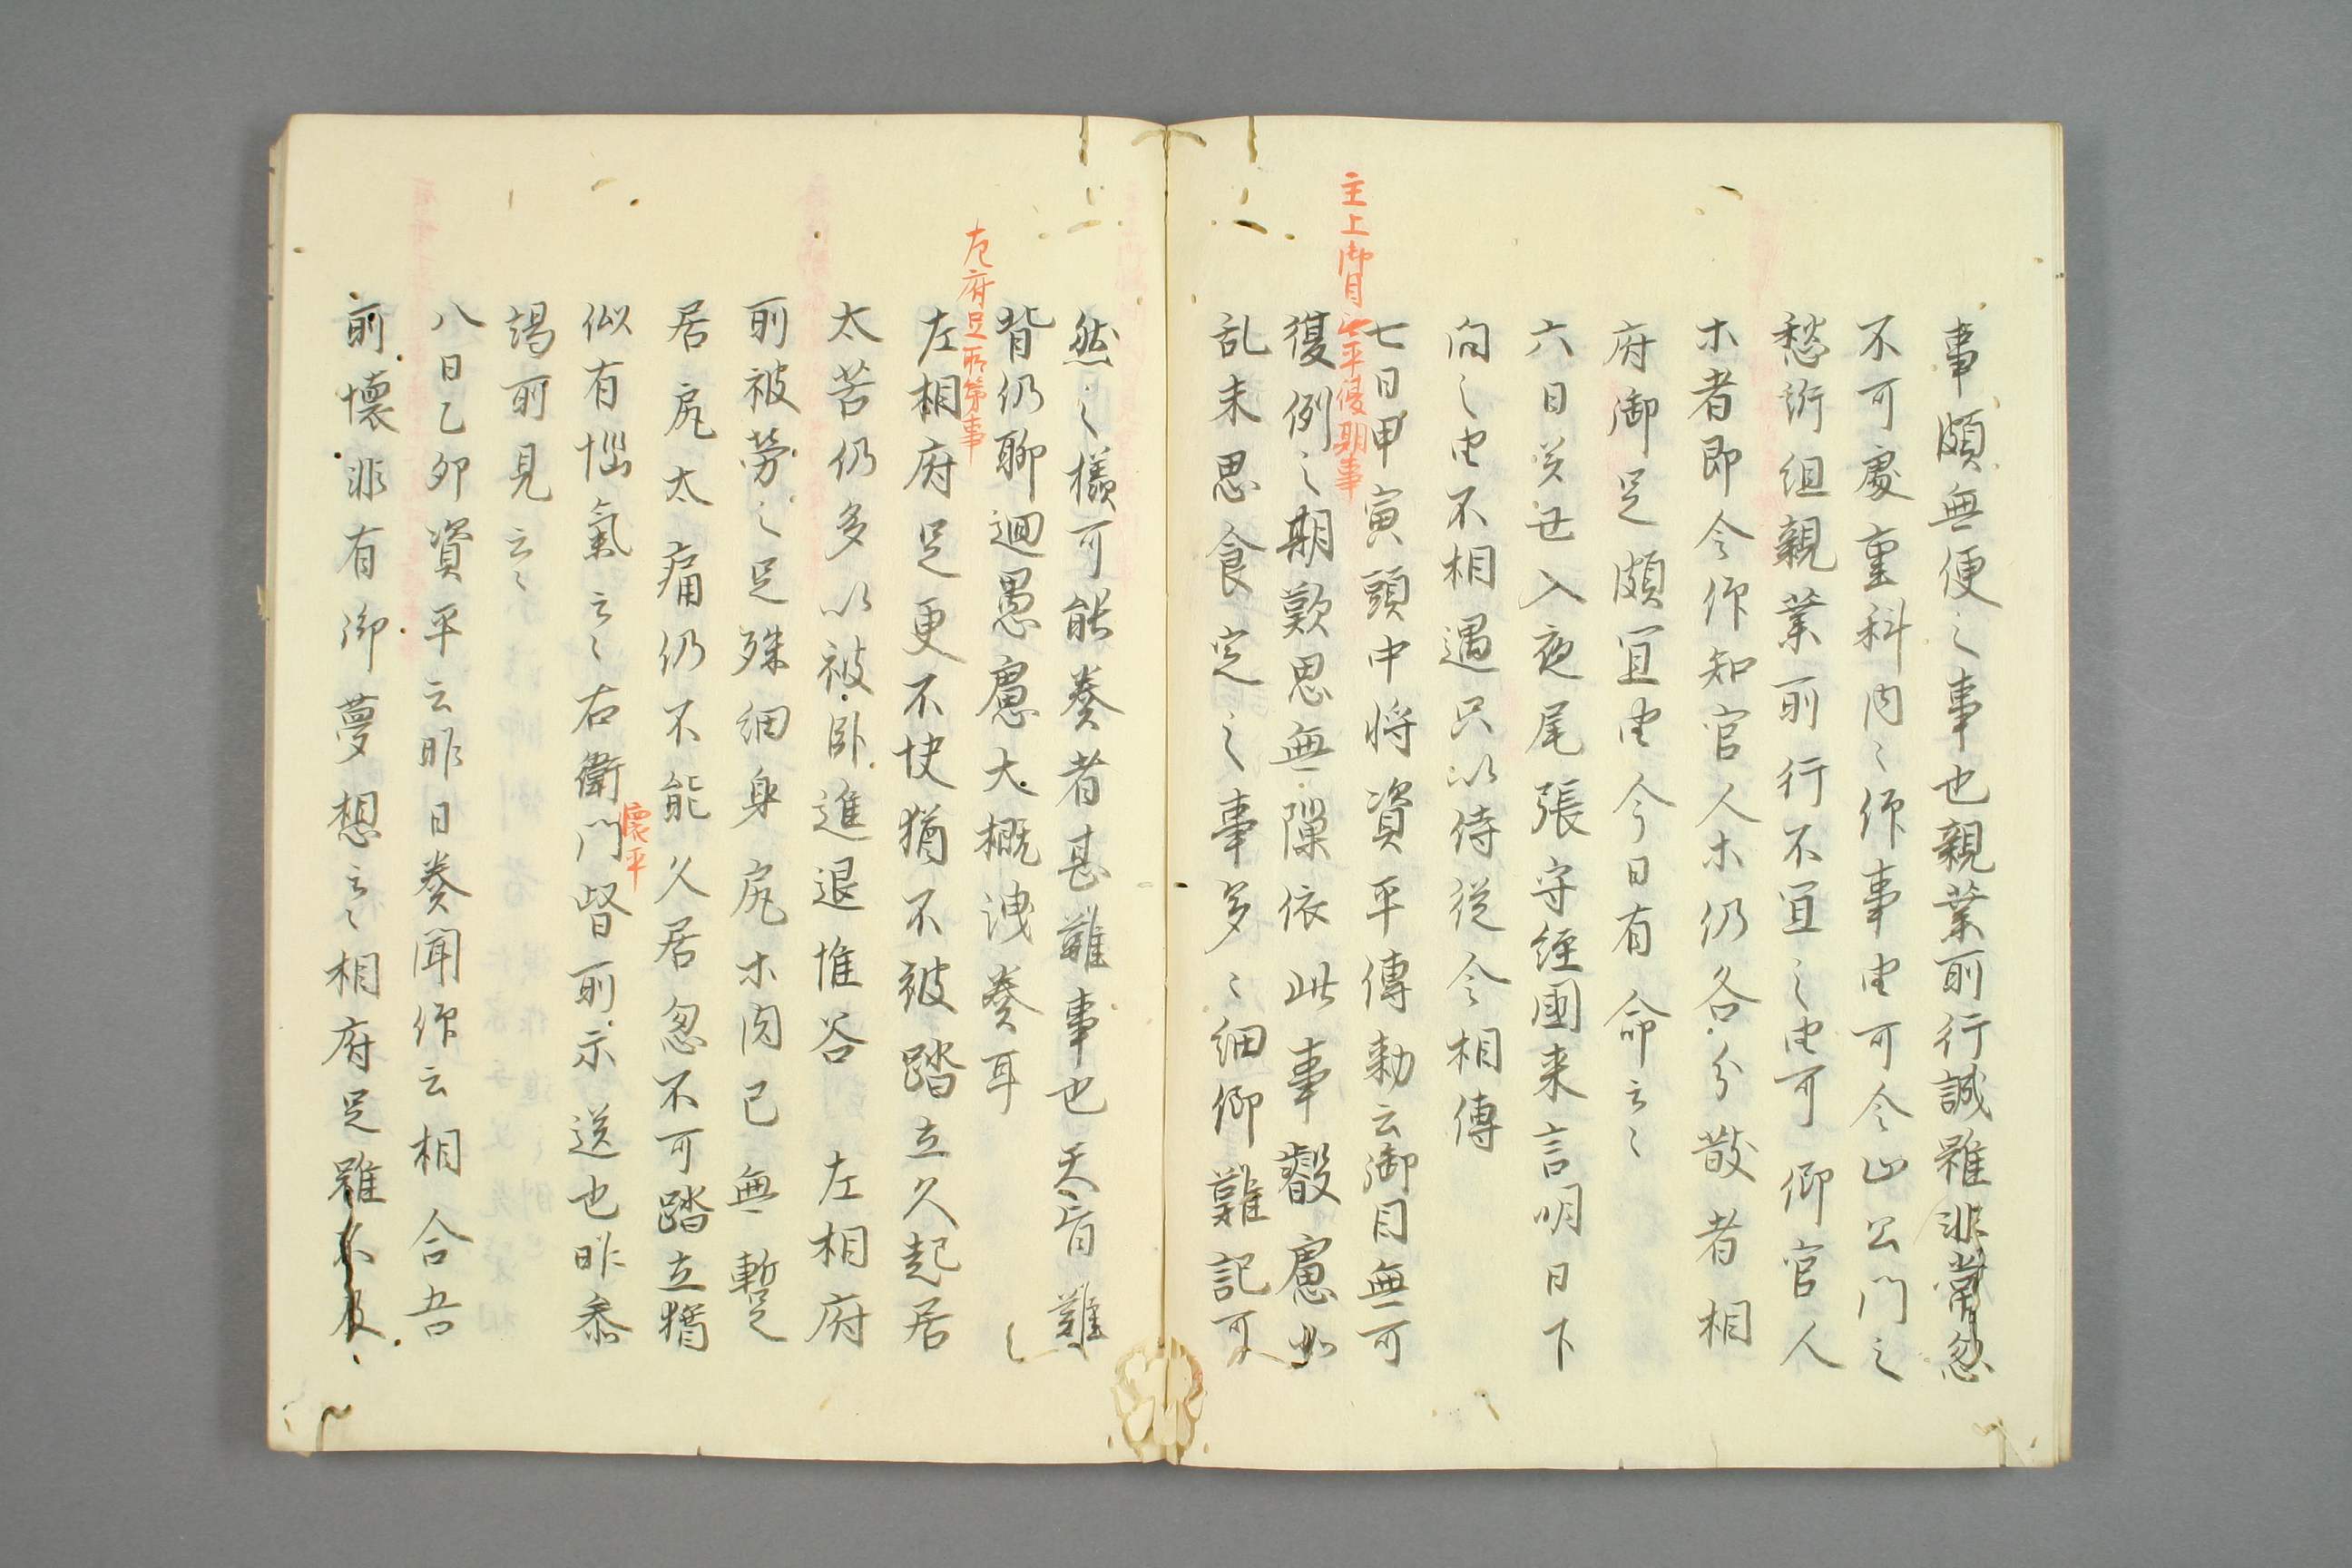 事頗無便之事也親業所行誠雖非常忽
不可處重科內々仰事由可令出公門之
愁訴但親業所行不宜之由可仰官人
ホ者即令仰知官人ホ仍各分散者相
府御足頗宜由今日有命云々
六日癸丑入夜尾張守経國来言明日下
向之由不相遇只以侍従令相傳
主上御目無平復期事
七日甲寅頭中将資平傳勅云御目無可
復例之期歎思無隙依此事叡慮如
乱未思食定之事多々細仰難記可
然之樣可能奏者甚難事也天旨難
背仍聊迴愚慮大概洩奏耳
左府足所勞事
左相府足更不快猶不被踏立久起居
太苦仍多以被臥進退惟谷 左相府
所被勞之足殊細身尻ホ肉已無暫
居尻太痛仍不能久居忽不可踏立猶
似有惱氣云々右衛門督所示送也昨参
懐平
謁所見云々
八日乙卯資平云昨日奏聞仰云相合吾
所懐非有御夢想云々相府足雖不及